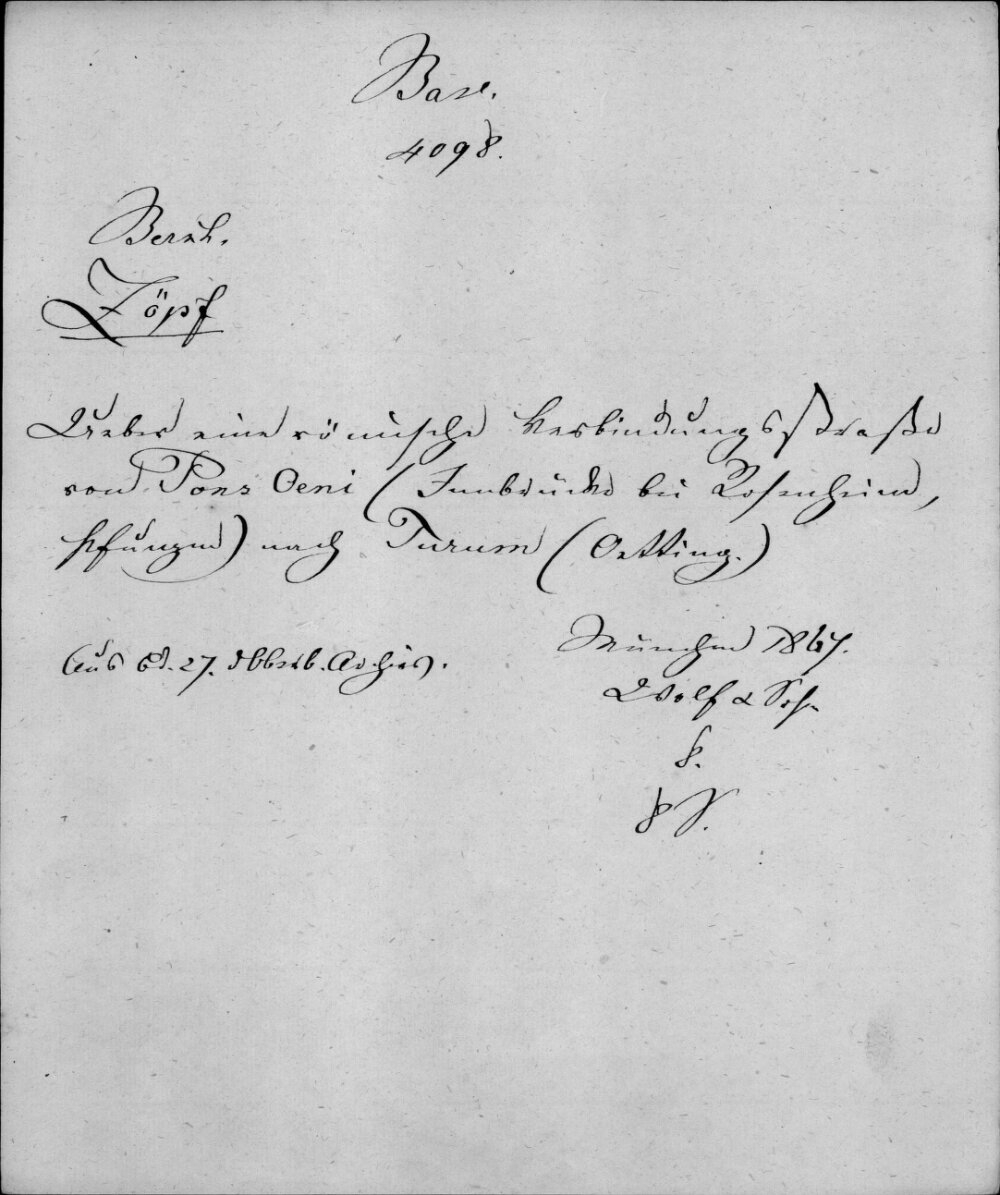 Bavar.
4098.
Bernh.
Zöpf
Ueber eine römische Verbindungsstraße
von Pons Oeni (Innbrücke bei Rosenheim,
Pfunzen) nach Turum (Oetting.)
Aus Bd. 27. d Obb. Archivs.
München 1867.
Wolf & Sohn
8.